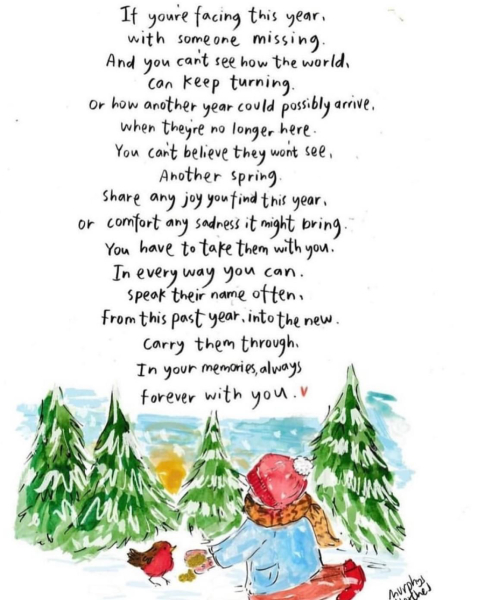 If you're facing this year,
with someone missing.
And you can't see how the world,
can keep turning.
Or how another year could possibly arrive,
when they're no longer here.
You can't believe they won't see,
Another spring.
Share any joy you find this year,
or comfort any sadness it might bring.
You have to take them with you.
In every way you can.
Speak their name often,
From this past year, into the new.
Carry them through,
In your memories, always
forever with you.
murphys